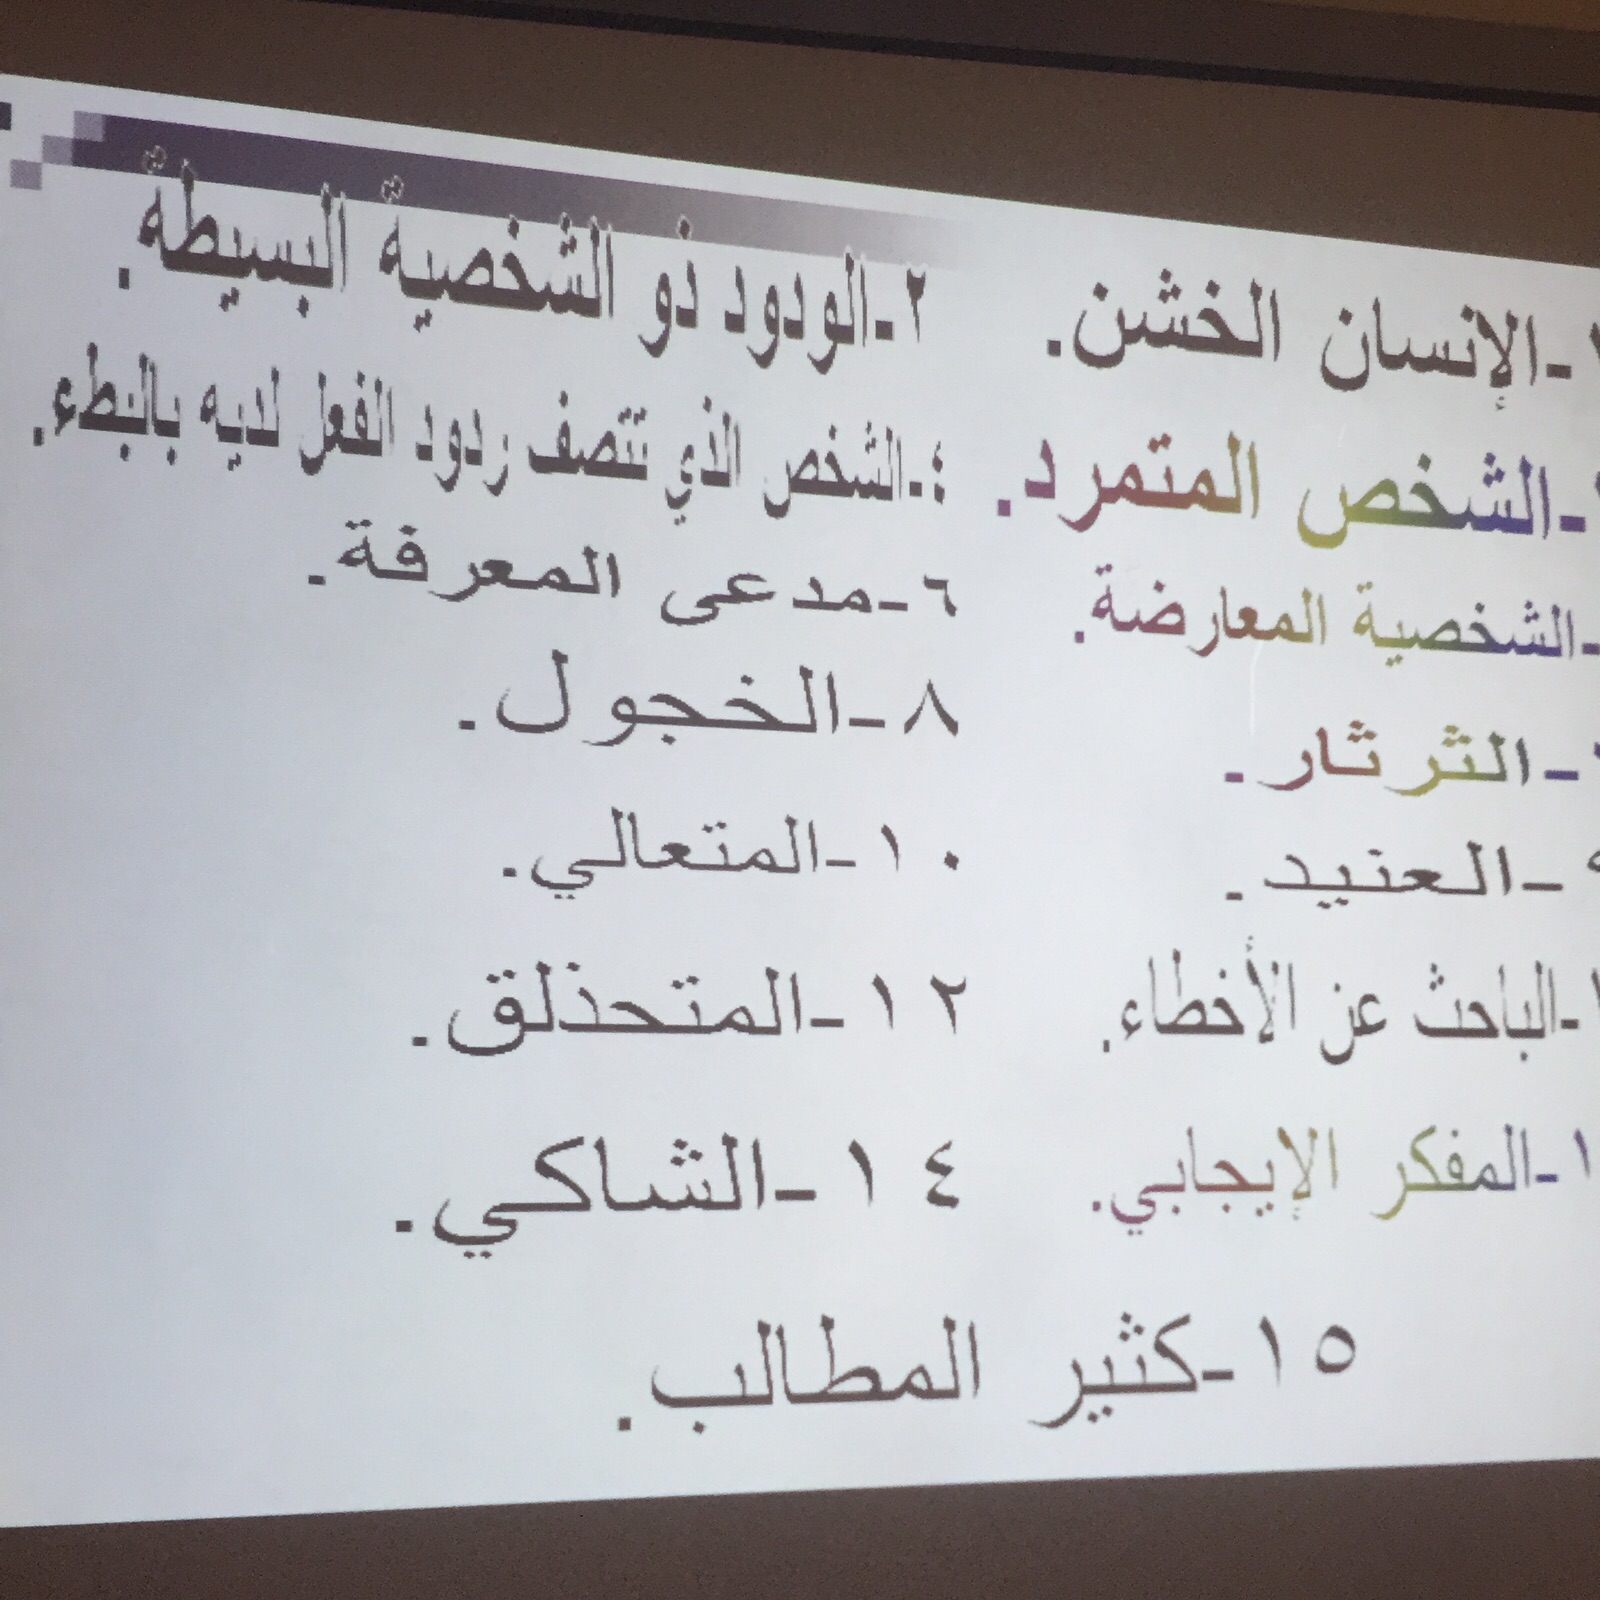 ١-الإنسان الخشن. ٢-الودود ذو الشخصية البسيطة.
-الشخص المتمرد. ٤-الشخص الذي تتصف ردود الفعل لديه بالبطء.
-الشخصية المعارضة. ٦-مدعى المعرفة.
-الثرثار. ٨-الخجول.
٩-العنيد. ١٠-المتعالي.
-الباحث عن الأخطاء. ١٢-المتحذلق.
-المفكر الإيجابي. ١٤-الشاكي.
١٥-كثير المطالب.